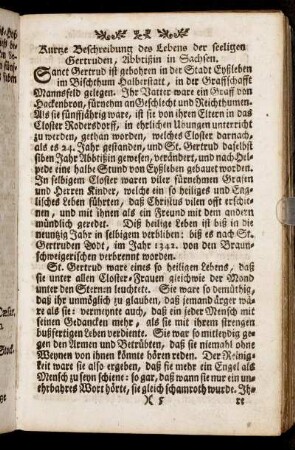 Kurtze Beschreibung des Lebens der seeligen
Gertruden, Abbtißin in Sachsen.
Sanct Gertrud ist gebohren in der Stadt Eyßleben
im Bischthum Halberstatt, in der Graffschafft
Mannsfeld gelegen. Ihr Vatter ware ein Graff von
Hockenbron, fürnehm an Geschlecht und Reichthumen.
Als sie fünffjährig ware, ist sie von ihren Eltern in das
Closter Rodersdorff, in ehrlichen Ubungen unterricht
zu werden, gethan worden, welches Closter darnach,
als es 24. Jahr gestanden, und St. Gertrud daselbst
siben Jahr Abbtißin gewesen, verändert, und nach Hel-
pede eine halbe Stund von Eyßleben gebauet worden.
In selbigem Closter waren viler fürnehmen Grafen
und Herren Kinder, welche ein so heiliges und Eng-
lisches Leben führten, daß Christus vilen offt erschie-
nen, und mit ihnen als ein Freund mit dem andern
mündlich geredet. Diß heilige Leben ist biß in die
neuntzig Jahr in selbigem verbliben: biß es nach St.
Gertruden Todt, im Jahr 1342. von den Braun-
schweigerischen verbrennt worden.
St. Gertrud ware eines so heiligen Lebens, daß
sie unter allen Closter-Frauen gleichwie der Mond
unter den Sternen leuchtete. Sie ware so demüthig,
daß ihr unmöglich zu glauben, daß jemand ärger wä-
re als sie: vermeynte auch, daß ein jeder Mensch mit
seinen Gedancken mehr, als sie mit ihrem strengen
bußfertigen Leben verdiente. Sie war so mitleydig ge-
gen den Armen und Betrübten, daß sie niemahl ohne
Weynen von ihnen könnte hören reden. Der Reinig-
keit ware sie also ergeben, daß sie mehr ein Engel als
Mensch zu seyn schiene: so gar, daß wann sie nur ein un-
ehrbahres Wort hörte, sie gleich schamroth wurde. Ih-
)( 5 re